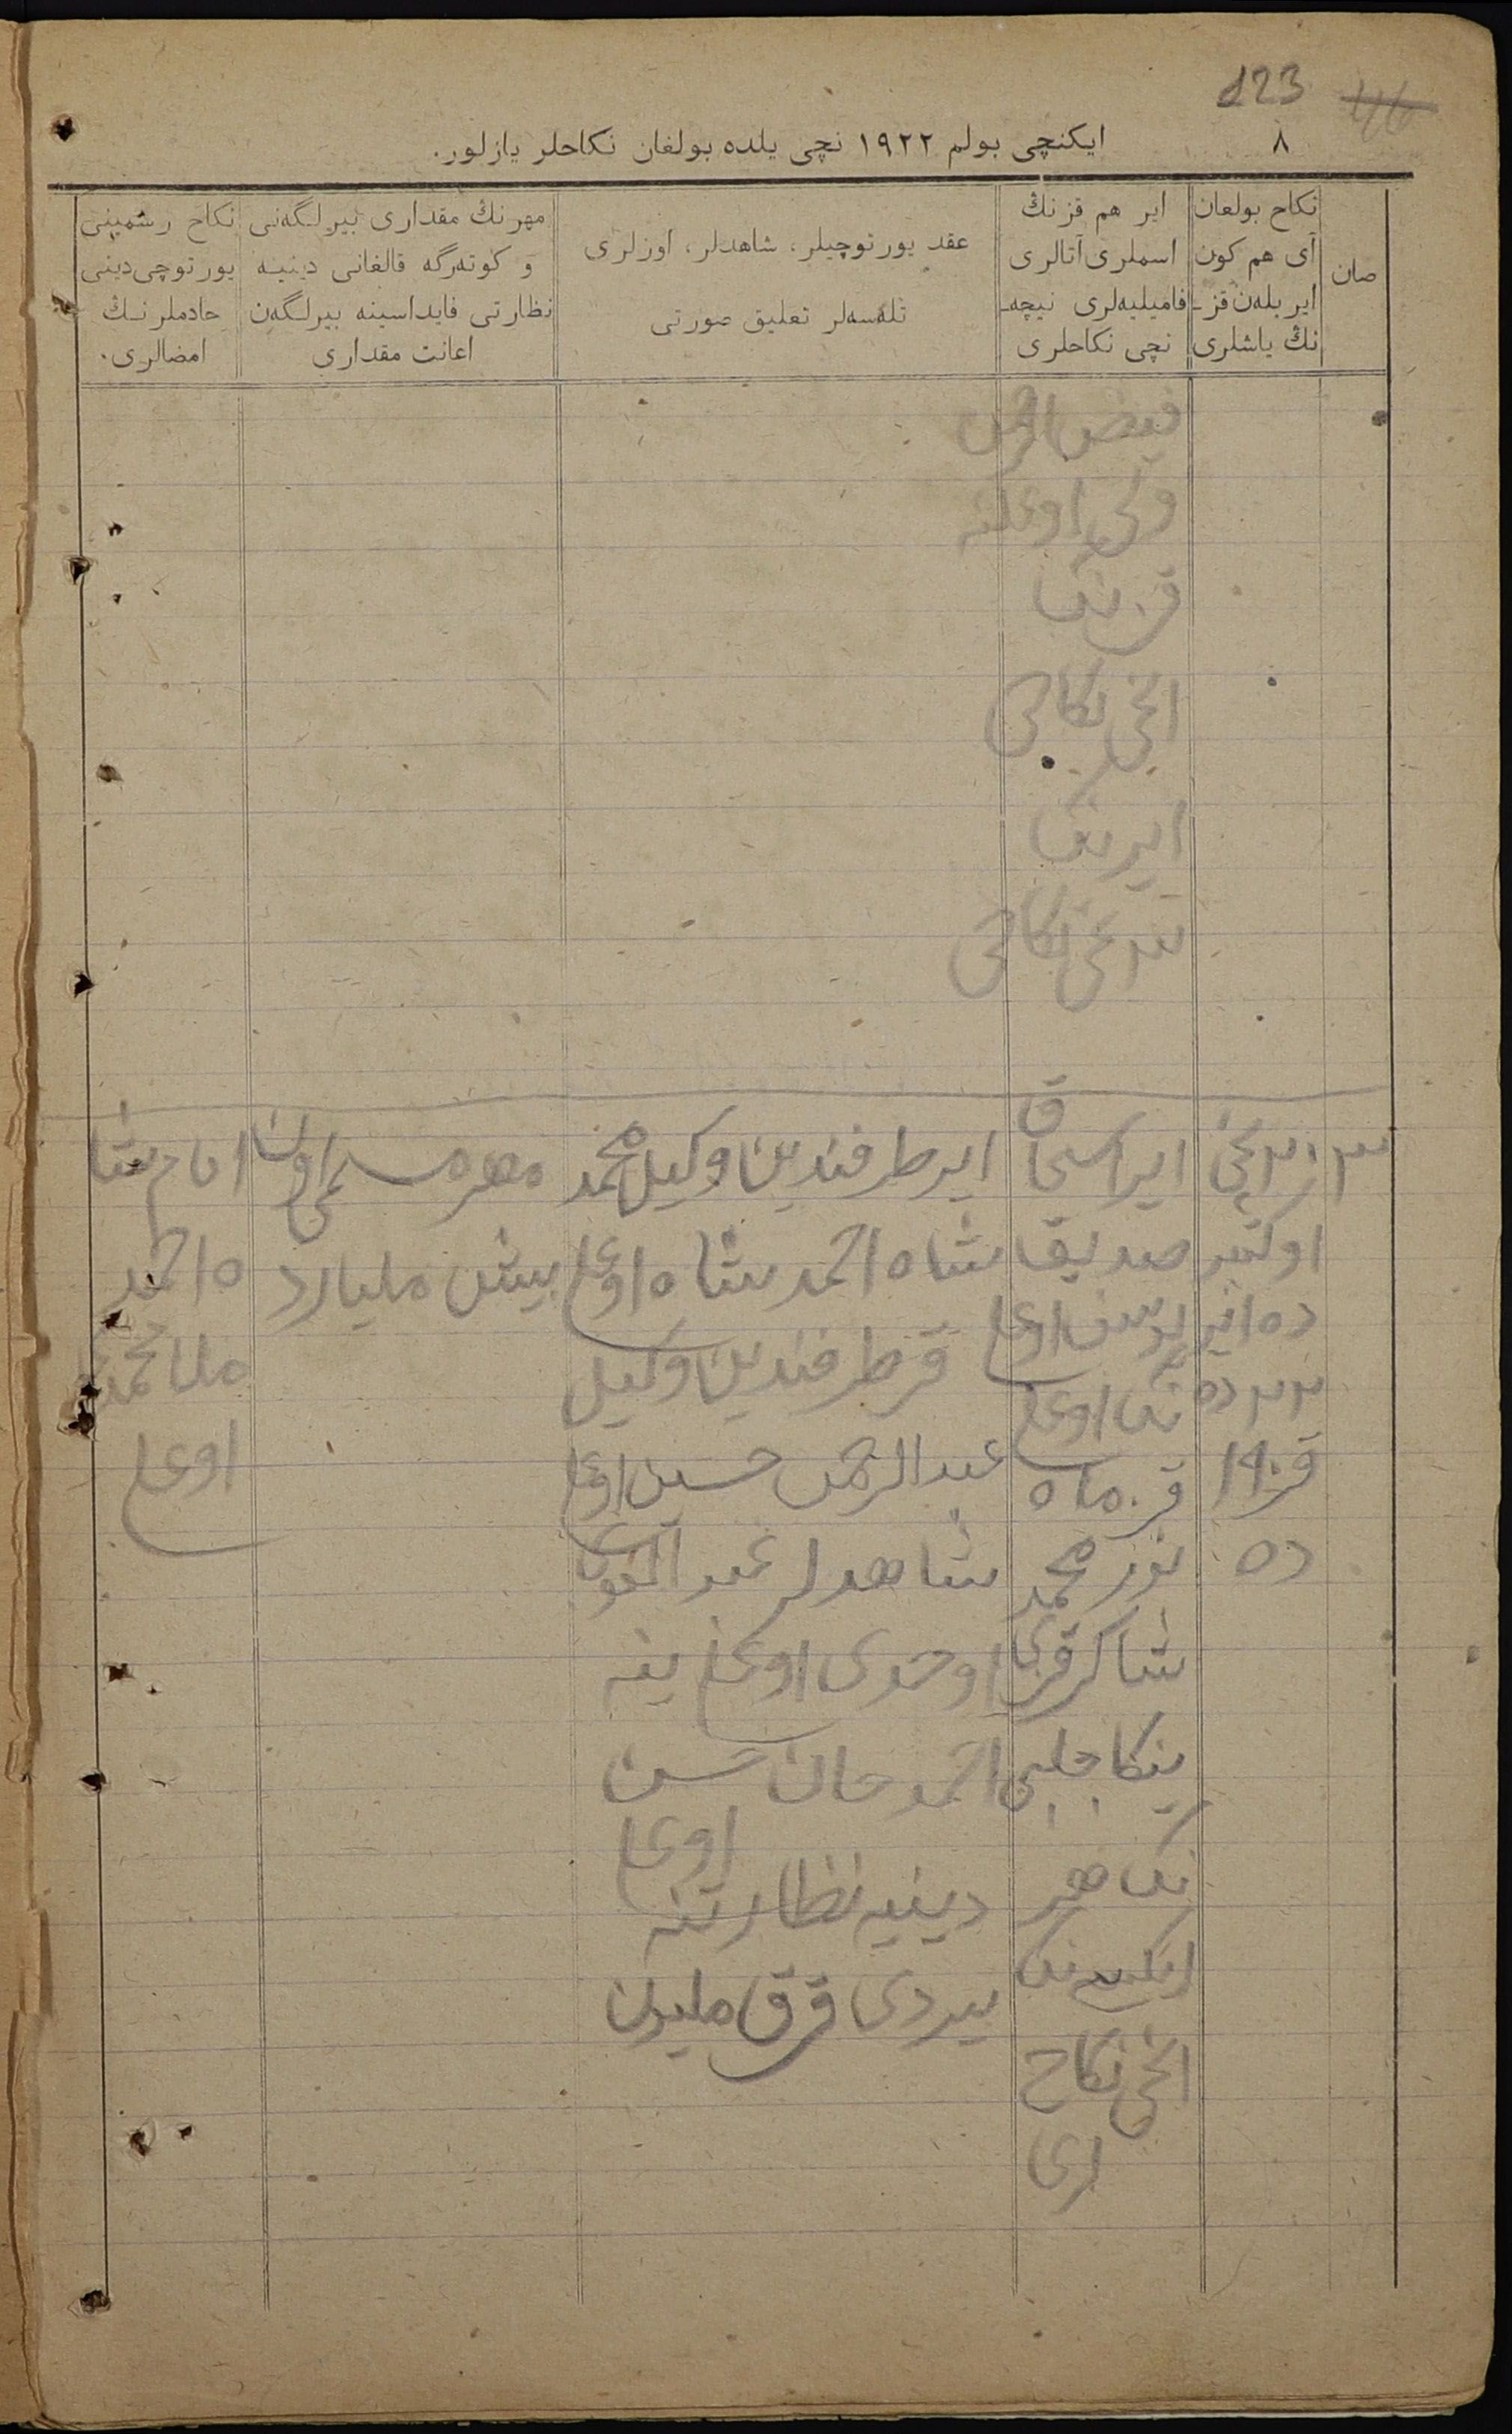 123
٨
ایكنچی بولم ١٩٢٢ نچی یلده بولغان نكاحلر یازلور.
صان
نكاح بولغان
آی هم كون
ایر بله‌ن قز-
نڭ یاشلری
ایر هم قز نڭ
اسملری آتالری
فامیلیه‌لری نیچه-
نچی نكاحلری
عقد یورتوچیلر، شاهدلر، اوزلری
تله‌سه‌لر تعلیق صورتی
مهر نڭ مقداری بیرلگه‌نی
و كوته‌رگه قالغانی دینیه
نظارتی فایداسینه بیرلگه‌ن
اعانت مقداری
نكاح رسمینی
یورتوچی دینی
خادملر نڭ
امضالری.
فیض الرحمن
ولی اوغلینه
قز نك
انچی نكاحی
ایر نك
نچی نكاحی
٣
٣ نچی
اوكتبر
ده ایر
٢٢ ده
قز ١٩
ده
ایر اسحاق
صدیق
یوسف اوغلی
نك اوغلی
قز ماه
نور محمد
شاكر قزی
ینكا چلبی
نك هم
ایكسی نك
انچی نكاح
لری
ایر طرفندین وكیل محمد
شاه احمد شاه اوغلی
قز طرفندین وكیل
عبد الرحمن حسین اوغلی
شاهدلر عبد القوی
اوحدی اوغلی ینه
احمد جان حسن
اوغلی
دینیه نظارتنه
بیردی قرق ملیون
مهر مسمی اون
بیش ملیارد
امام شا
ه احمد
ملا محمد
اوغلی